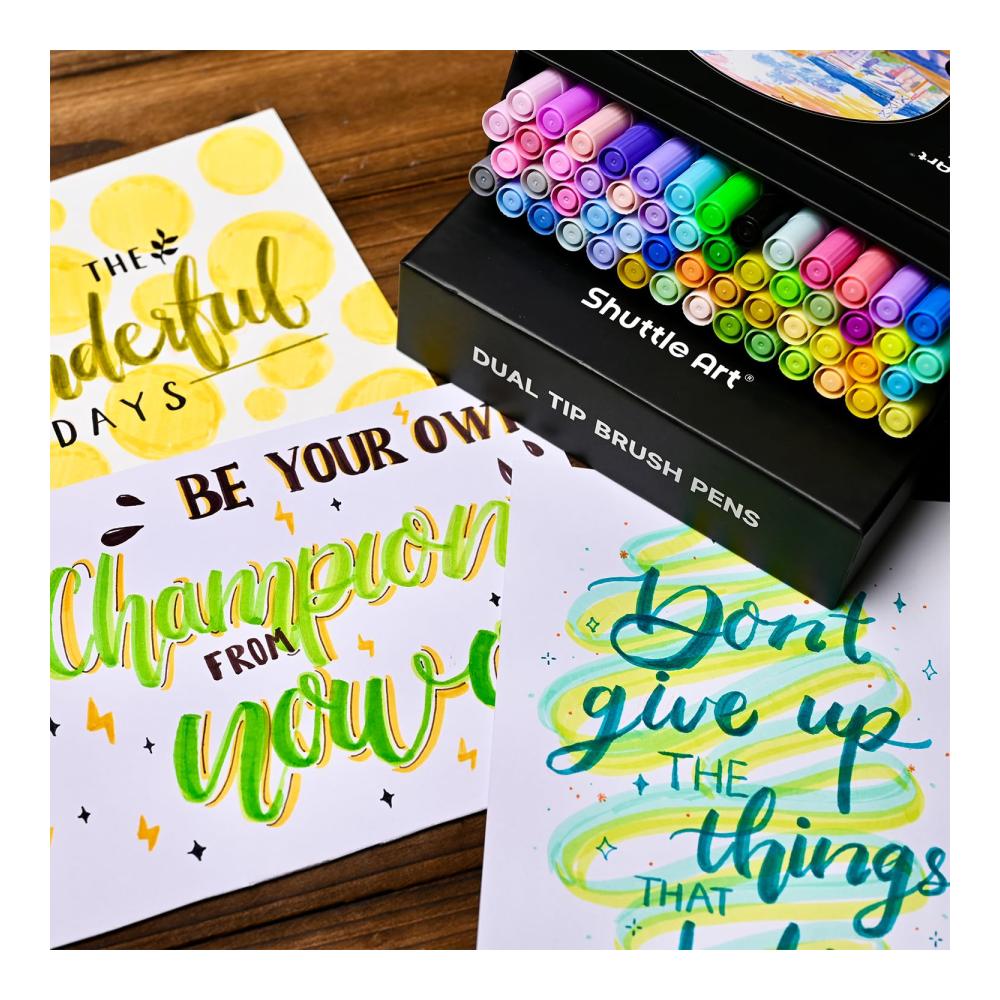 THE
nderful
DAYS
BE YOUR OWN
Champion
FROM
now
Shuttle Art®
DUAL TIP BRUSH PENS
Don't
give up
THE
things
THAT